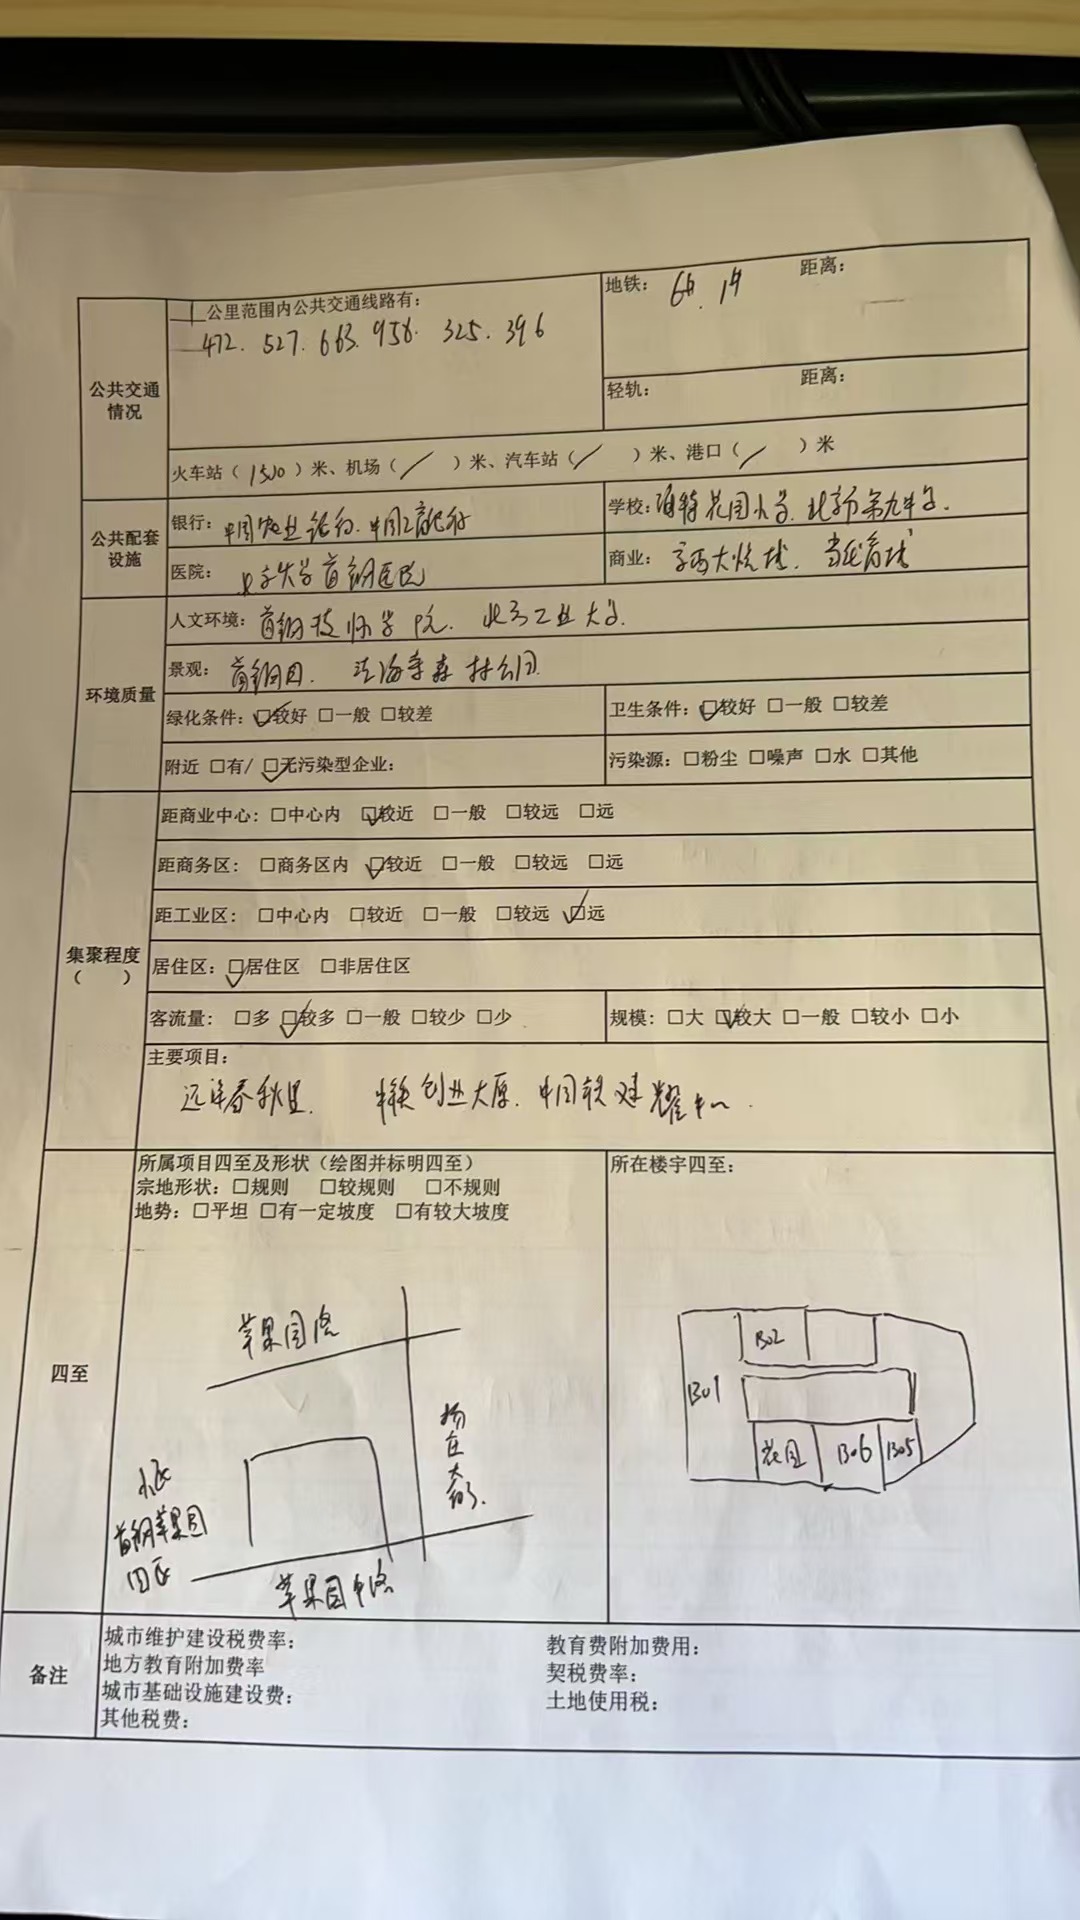 一 公里范围内公共交通线路有：
472. 527. 663. 958. 325. 396
地铁： 6号. 1号 距离：
轻轨： 距离：
公共交通情况
火车站（1500）米、机场（／）米、汽车站（／）米、港口（／）米
公共配套设施
银行：中国农业银行. 中国工商银行
学校：海特花园小学. 北京市第九中学.
医院：北京大学首钢医院
商业：京西大悦城.
环境质量
人文环境：首钢技师学院. 北方工业大学.
景观：首钢园. 法海寺森林公园.
绿化条件：☑较好 □一般 □较差
卫生条件：☑较好 □一般 □较差
附近 □有/ ☑无污染型企业：
污染源：□粉尘 □噪声 □水 □其他
集聚程度（ ）
距商业中心：□中心内 ☑较近 □一般 □较远 □远
距商务区：□商务区内 ☑较近 □一般 □较远 □远
距工业区：□中心内 □较近 □一般 □较远 ☑远
居住区：☑居住区 □非居住区
客流量：□多 ☑较多 □一般 □较少 □少
规模：□大 ☑较大 □一般 □较小 □小
主要项目：
远洋春秋里. 创业大厦. 中国铁建
四至
所属项目四至及形状（绘图并标明四至）
宗地形状：□规则 □较规则 □不规则
地势：□平坦 □有一定坡度 □有较大坡度
苹果园路
杨庄大街.
小区
首钢苹果园
四区
苹果园中路
所在楼宇四至：
B02
B01
花园 B06 B05
备注
城市维护建设税费率： 教育费附加费用：
地方教育附加费率 契税费率：
城市基础设施建设费： 土地使用税：
其他税费：